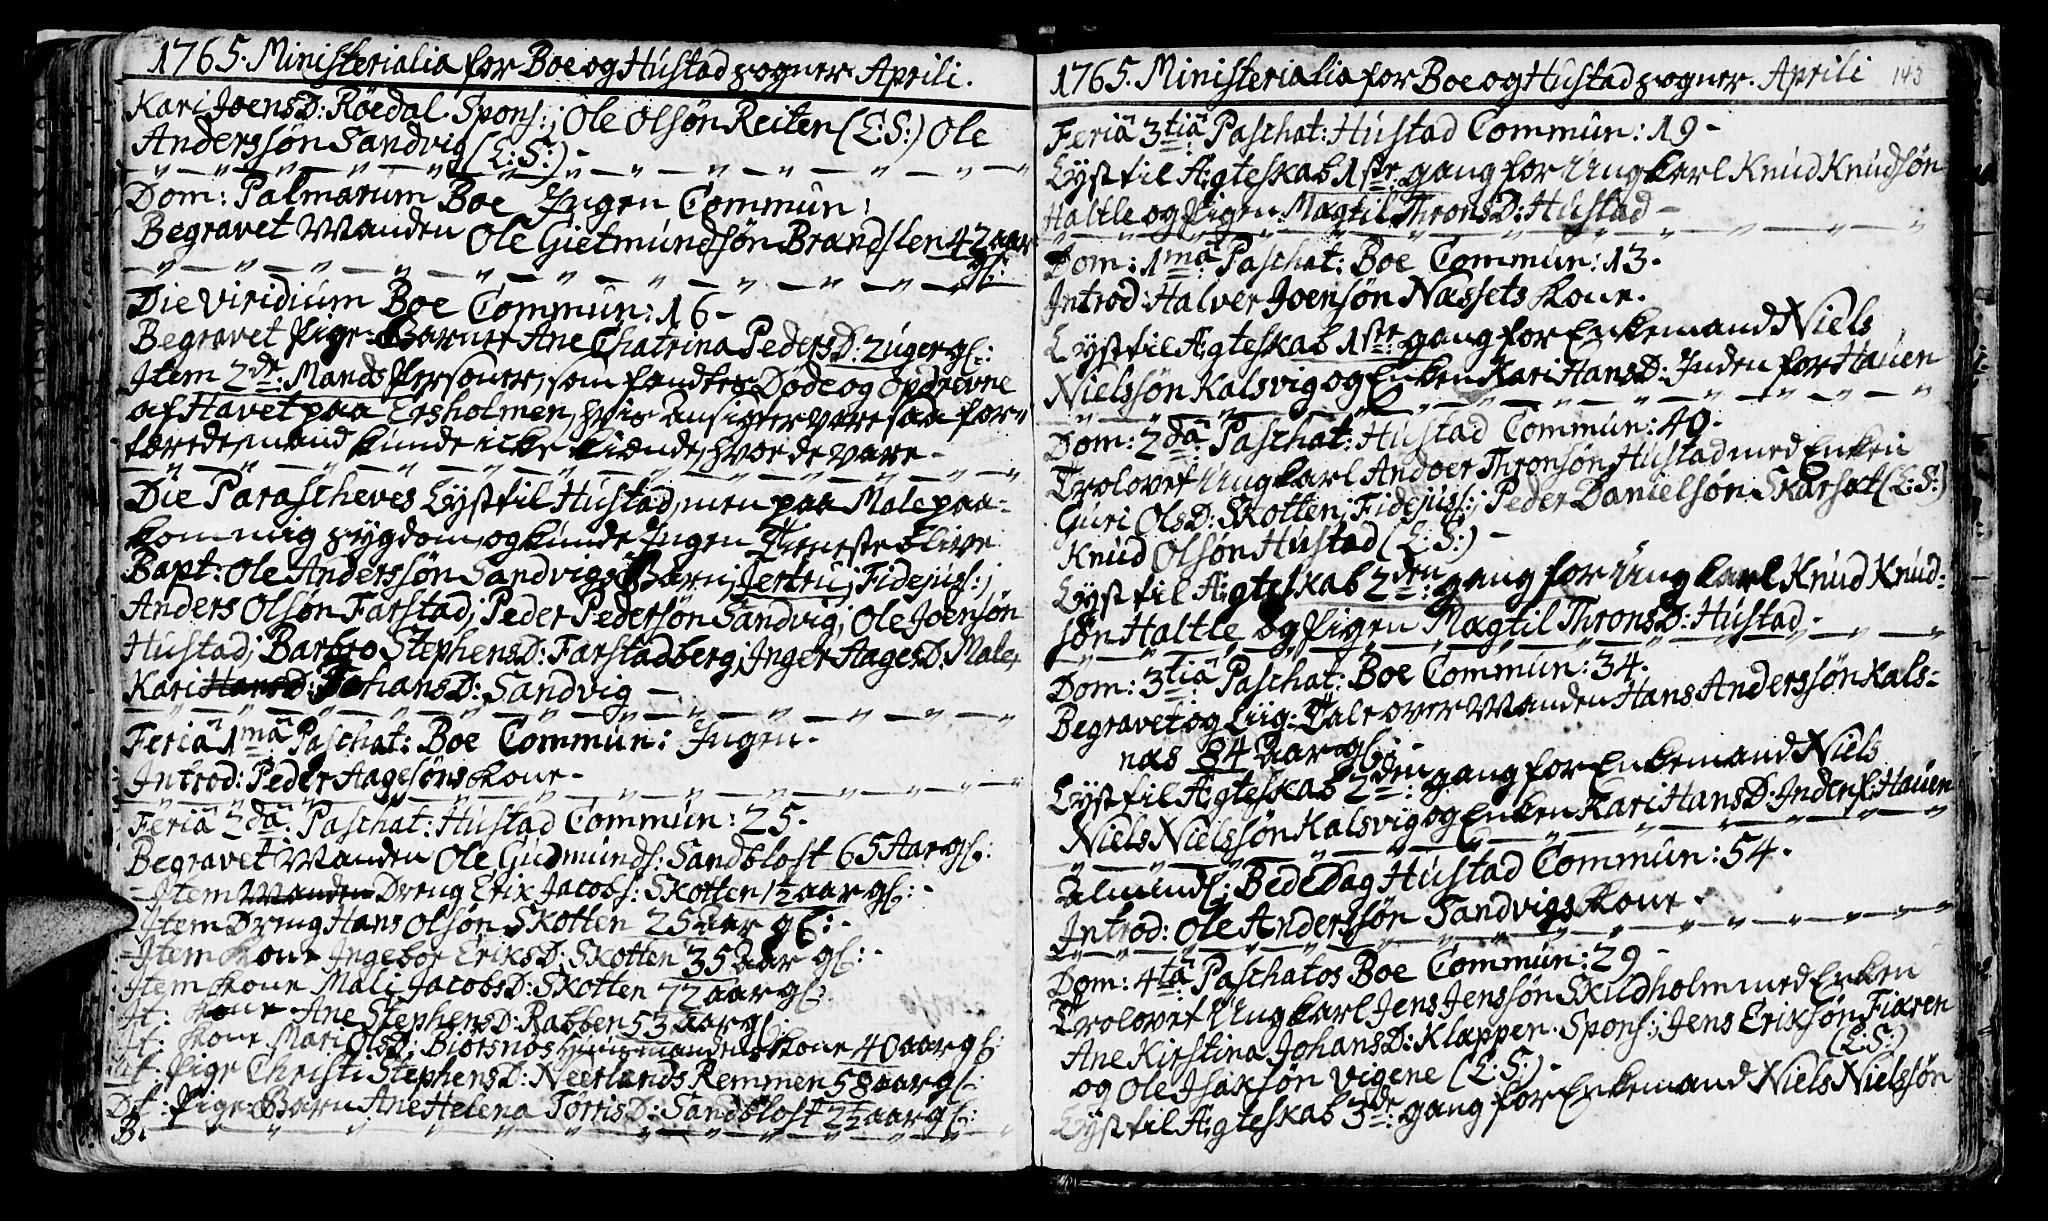 1765. Ministerialia for Boe og Hustad sogner Aprili.
Kari JoensD: Röedal Spons:; Ole Olsön Reiten (L:S:) Ole
Anderssön Sandvig (L:S:) -
Dom: Palmarum Boe Ingen Commun:
Begravet Manden Ole Gietmundsön Brandslen 42 aar
gl:
Die viridium Boe Commun: 16 -
Begravet Pige-Barnet Ane Chatrina PedersD: 2 uger gl:
Item 2de: Mands Personer, som fandtes Döde og opdrevne
af Havet paa Egsholmen, hvis Ansigter vare saa for-
tærede, mand kunde icke kiænde, hvor de vare -
Die Parascheves Lyst til Hustad, men paa Male paa-
kom mig sygdom, og kunde Ingen Tieneste blive
Bapt: Ole Anderssön Sandvigs Barn; Jertru; Fidejuss:;
Anders Olsön Farstad; Peder Pedersön Sandvig; Ole Joensön
Hustad; Barbro StephensD: Farstadberg; Inger AagesD: Male,
Kari HansD: JohansD: Sandvig -
Feriâ 1mâ Paschat: Boe Commun: Ingen -
Introd: Peder Aagesöns Kone -
Feriâ 2dâ: Paschat: Hustad Commun: 25 -
Begravet Manden Ole Gudmunds: Sandblost 65 Aar gl:
- Item Manden Dreng Erik Jacobs: Skotten 1½ aar gl: -
Item Dreng Hans Olsön Skotten 25 aar gl: -
- Item Kone Ingebor EriksD: Skotten 35 aar gl: -
Item Kone Mali JacobsD: Skotten 72 aar gl:
It: Kone Ane StephensD: Rabben 53 aar gl:
It: Kone Mari OlsD: Biörsnos huusmandens Kone 40 aar gl:
it: Pige Christi StephensD: Neerlands Remmen 58 aar gl:
It: Pige-Barn Ane Helena TorrisD: Sandblost 2½ aar gl:
B.
1765. Ministerialia for Boe og Hustad sogner. Aprili 143
Feriâ 3tiâ Paschat: Hustad Commun: 19 -
Lyst til Ægteskab 1ste: gang for Ungkarl Knud Knudsön
Haltle og Pigen Magtil ThronsD: Hustad -
Dom: 1mâ: Paschat: Boe Commun: 13 -
Introd: Halver Joensön Næssets Kone -
Lyst til Ægteskab 1ste: gang for Enkemand Niels
Nielssön Kalsvig og Enken Kari HansD: Inden for Hauen
Dom: 2dâ: Paschat: Hustad Commun: 40 -
Trolovet Ungkarl Andoer Thronsön Hustad med Enken
Guri OlsD: Skotten; Fidejuss:; Peder Danielsön Skarsat (L:S:)
Knud Olsön Hustad (L:S:) -
Lyst til Ægteskab 2den: gang for Ungkarl Knud Knud-
sön Haltle og Pigen Magtil ThronsD: Hustad -
Dom: 3tiâ Paschat: Boe Commun: 34 -
Begravet og Liig-Tale over Manden Hans Anderssön Kals-
næs 84 Aar gl: -
Lyst til Ægteskab 2den: gang for Enkemand Niels
Niels Nielssön Kalsvig og Enken Kari HansD: Inden f: Hauen
Almindl: Bededag Hustad Commun: 54 -
Introd: Ole Anderssön Sandvigs Kone -
Dom: 4tâ: Paschatos Boe Commun: 29 -
Trolovet Ungkarl Jens Jenssön Skudholm med Enken
Ane Kirstina JohansD: Klappen. Spons:; Jens Eriksön Fiæren
(L:S:)
og Ole Isaksön Vigene (L:S:) -
Lyst til Ægteskab 3de: gang for Enkemand Niels Nielssön